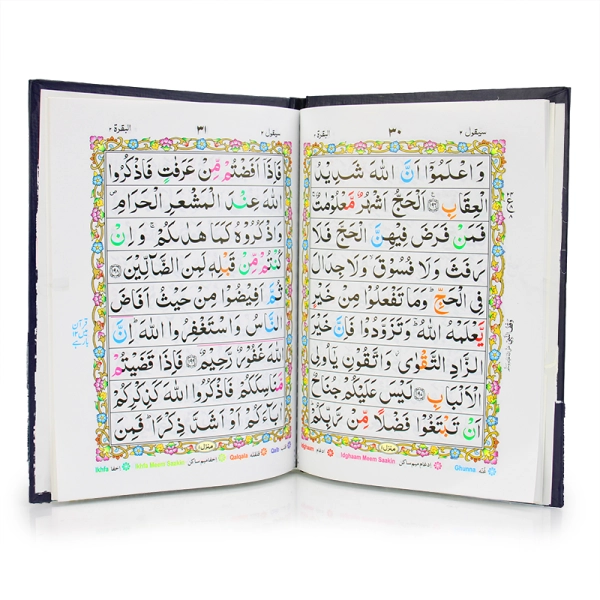 سيقول ٢ ٣٠ البقرة ٢
وَاعْلَمُوْۤا اَنَّ اللّٰهَ شَدِيْدُ
الْعِقَابِ ﴿۱۹۶﴾ اَلْحَجُّ اَشْهُرٌ مَّعْلُوْمٰتٌ ۚ
فَمَنْ فَرَضَ فِيْهِنَّ الْحَجَّ فَلَا
رَفَثَ وَلَا فُسُوْقَ ۙ وَلَا جِدَالَ
فِي الْحَجِّ ؕ وَمَا تَفْعَلُوْا مِنْ خَيْرٍ
يَّعْلَمْهُ اللّٰهُ ؔؕ وَتَزَوَّدُوْا فَاِنَّ خَيْرَ
الزَّادِ التَّقْوٰى ؗ وَاتَّقُوْنِ يٰۤاُولِي
الْاَلْبَابِ ﴿۱۹۷﴾ لَيْسَ عَلَيْكُمْ جُنَاحٌ
اَنْ تَبْتَغُوْا فَضْلًا مِّنْ رَّبِّكُمْ ؕ
منزل ١
غنّه Ghunna ادغام ميم ساكن Idghaam Meem Saakin ادغام
سيقول ٢ ٣١ البقرة ٢
فَاِذَاۤ اَفَضْتُمْ مِّنْ عَرَفٰتٍ فَاذْكُرُوا
اللّٰهَ عِنْدَ الْمَشْعَرِ الْحَرَامِ ۪
وَاذْكُرُوْهُ كَمَا هَدٰىكُمْ ۚ وَاِنْ
كُنْتُمْ مِّنْ قَبْلِهٖ لَمِنَ الضَّآلِّيْنَ ﴿۱۹۸﴾
ثُمَّ اَفِيْضُوْا مِنْ حَيْثُ اَفَاضَ
النَّاسُ وَاسْتَغْفِرُوا اللّٰهَ ؕ اِنَّ
اللّٰهَ غَفُوْرٌ رَّحِيْمٌ ﴿۱۹۹﴾ فَاِذَا قَضَيْتُمْ
مَّنَاسِكَكُمْ فَاذْكُرُوا اللّٰهَ كَذِكْرِكُمْ
اٰبَآءَكُمْ اَوْ اَشَدَّ ذِكْرًا ؕ فَمِنَ
منزل ١
قلب Qalb قلقله Qalqala اخفا ميم ساكن Ikhfa Meem Saakin اخفا Ikhfa